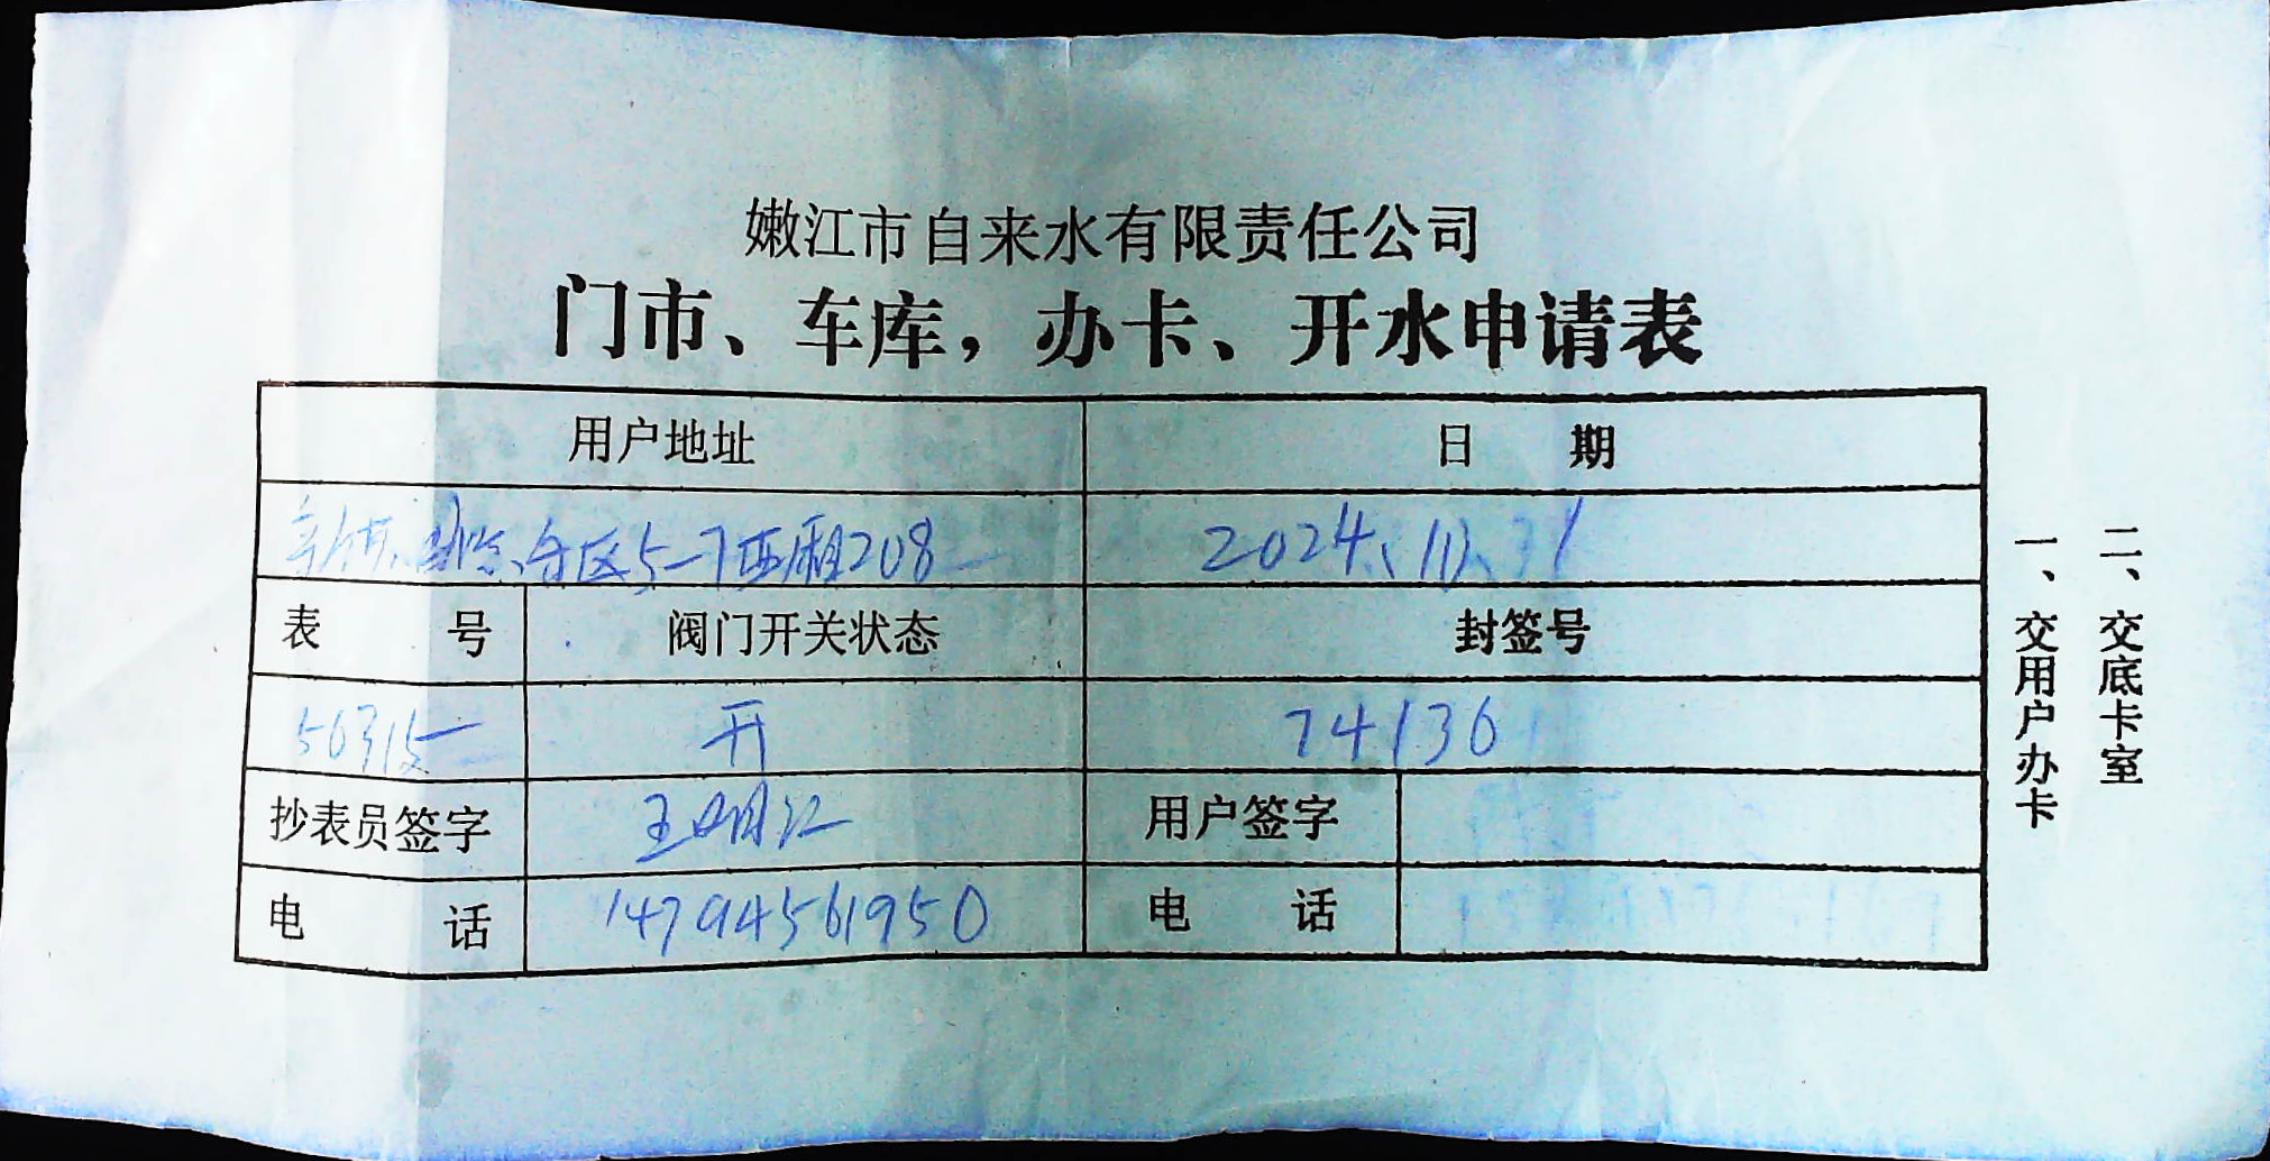 嫩江市自来水有限责任公司
门市、车库,办卡、开水申请表
用户地址
日 期
小区5-7西厢208
2024、10、31
表 号
阀门开关状态
封签号
56315
开
74136
抄表员签字
王明江
用户签字
电 话
14794561950
电 话
二、交底卡室
一、交用户办卡